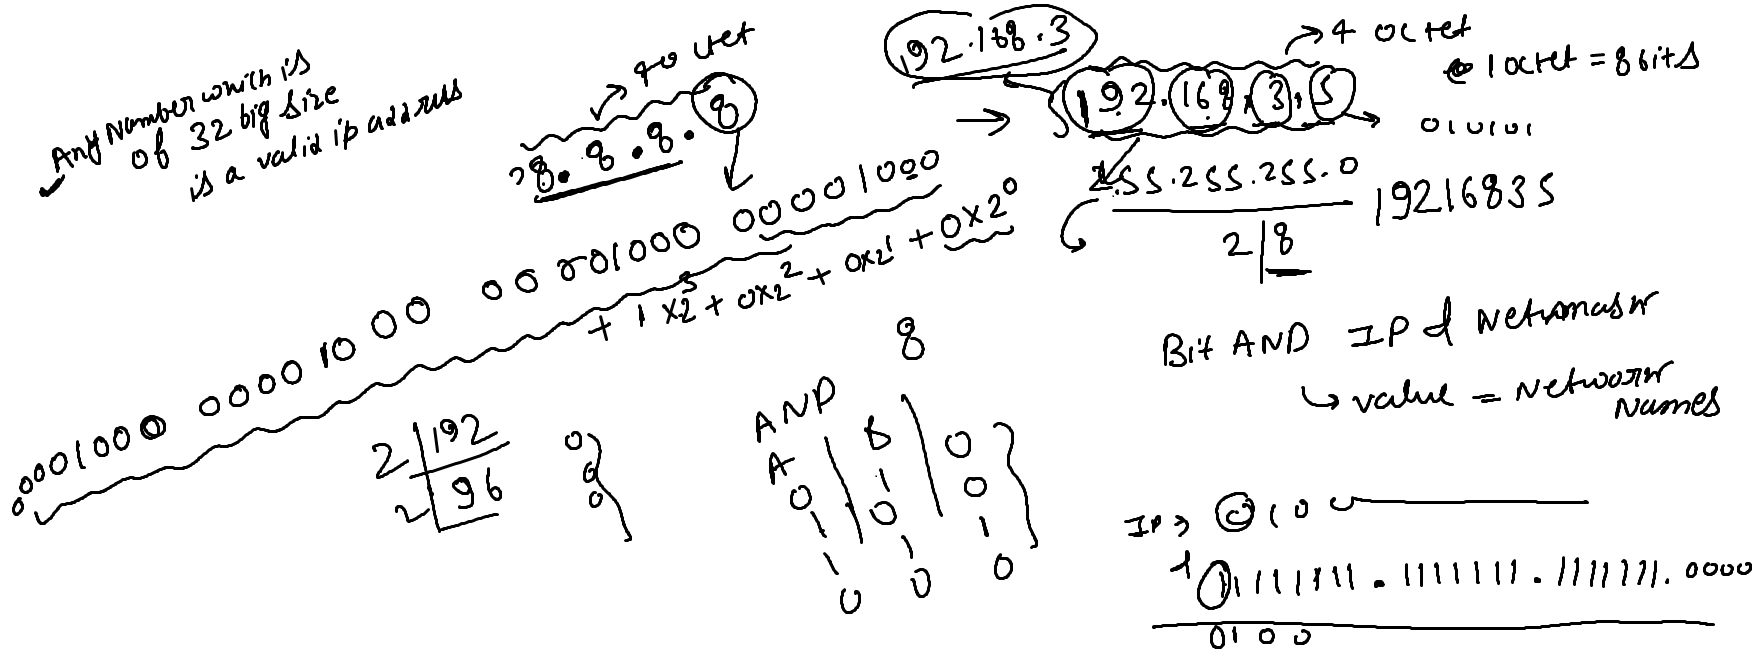 Any Number which is
of 32 big size
is a valid ip address
4 octet
8.8.8.8
0001000 00001000 00001000 00001000
+ 1x2³ + 0x2² + 0x2¹ + 0x2⁰
8
192.168.3
4 octet
1 octet = 8bits
192.168.3.5
010101
255.255.255.0
19216835
2|8
Bit AND IP & Netmask
value = Network
Names
2|192 0
2|96 0
0
AND
A | B | 0
0 1 0
1 0 1
1 1 0
0 0
IP → 0100
& 11111111.1111111.1111111.0000
0100